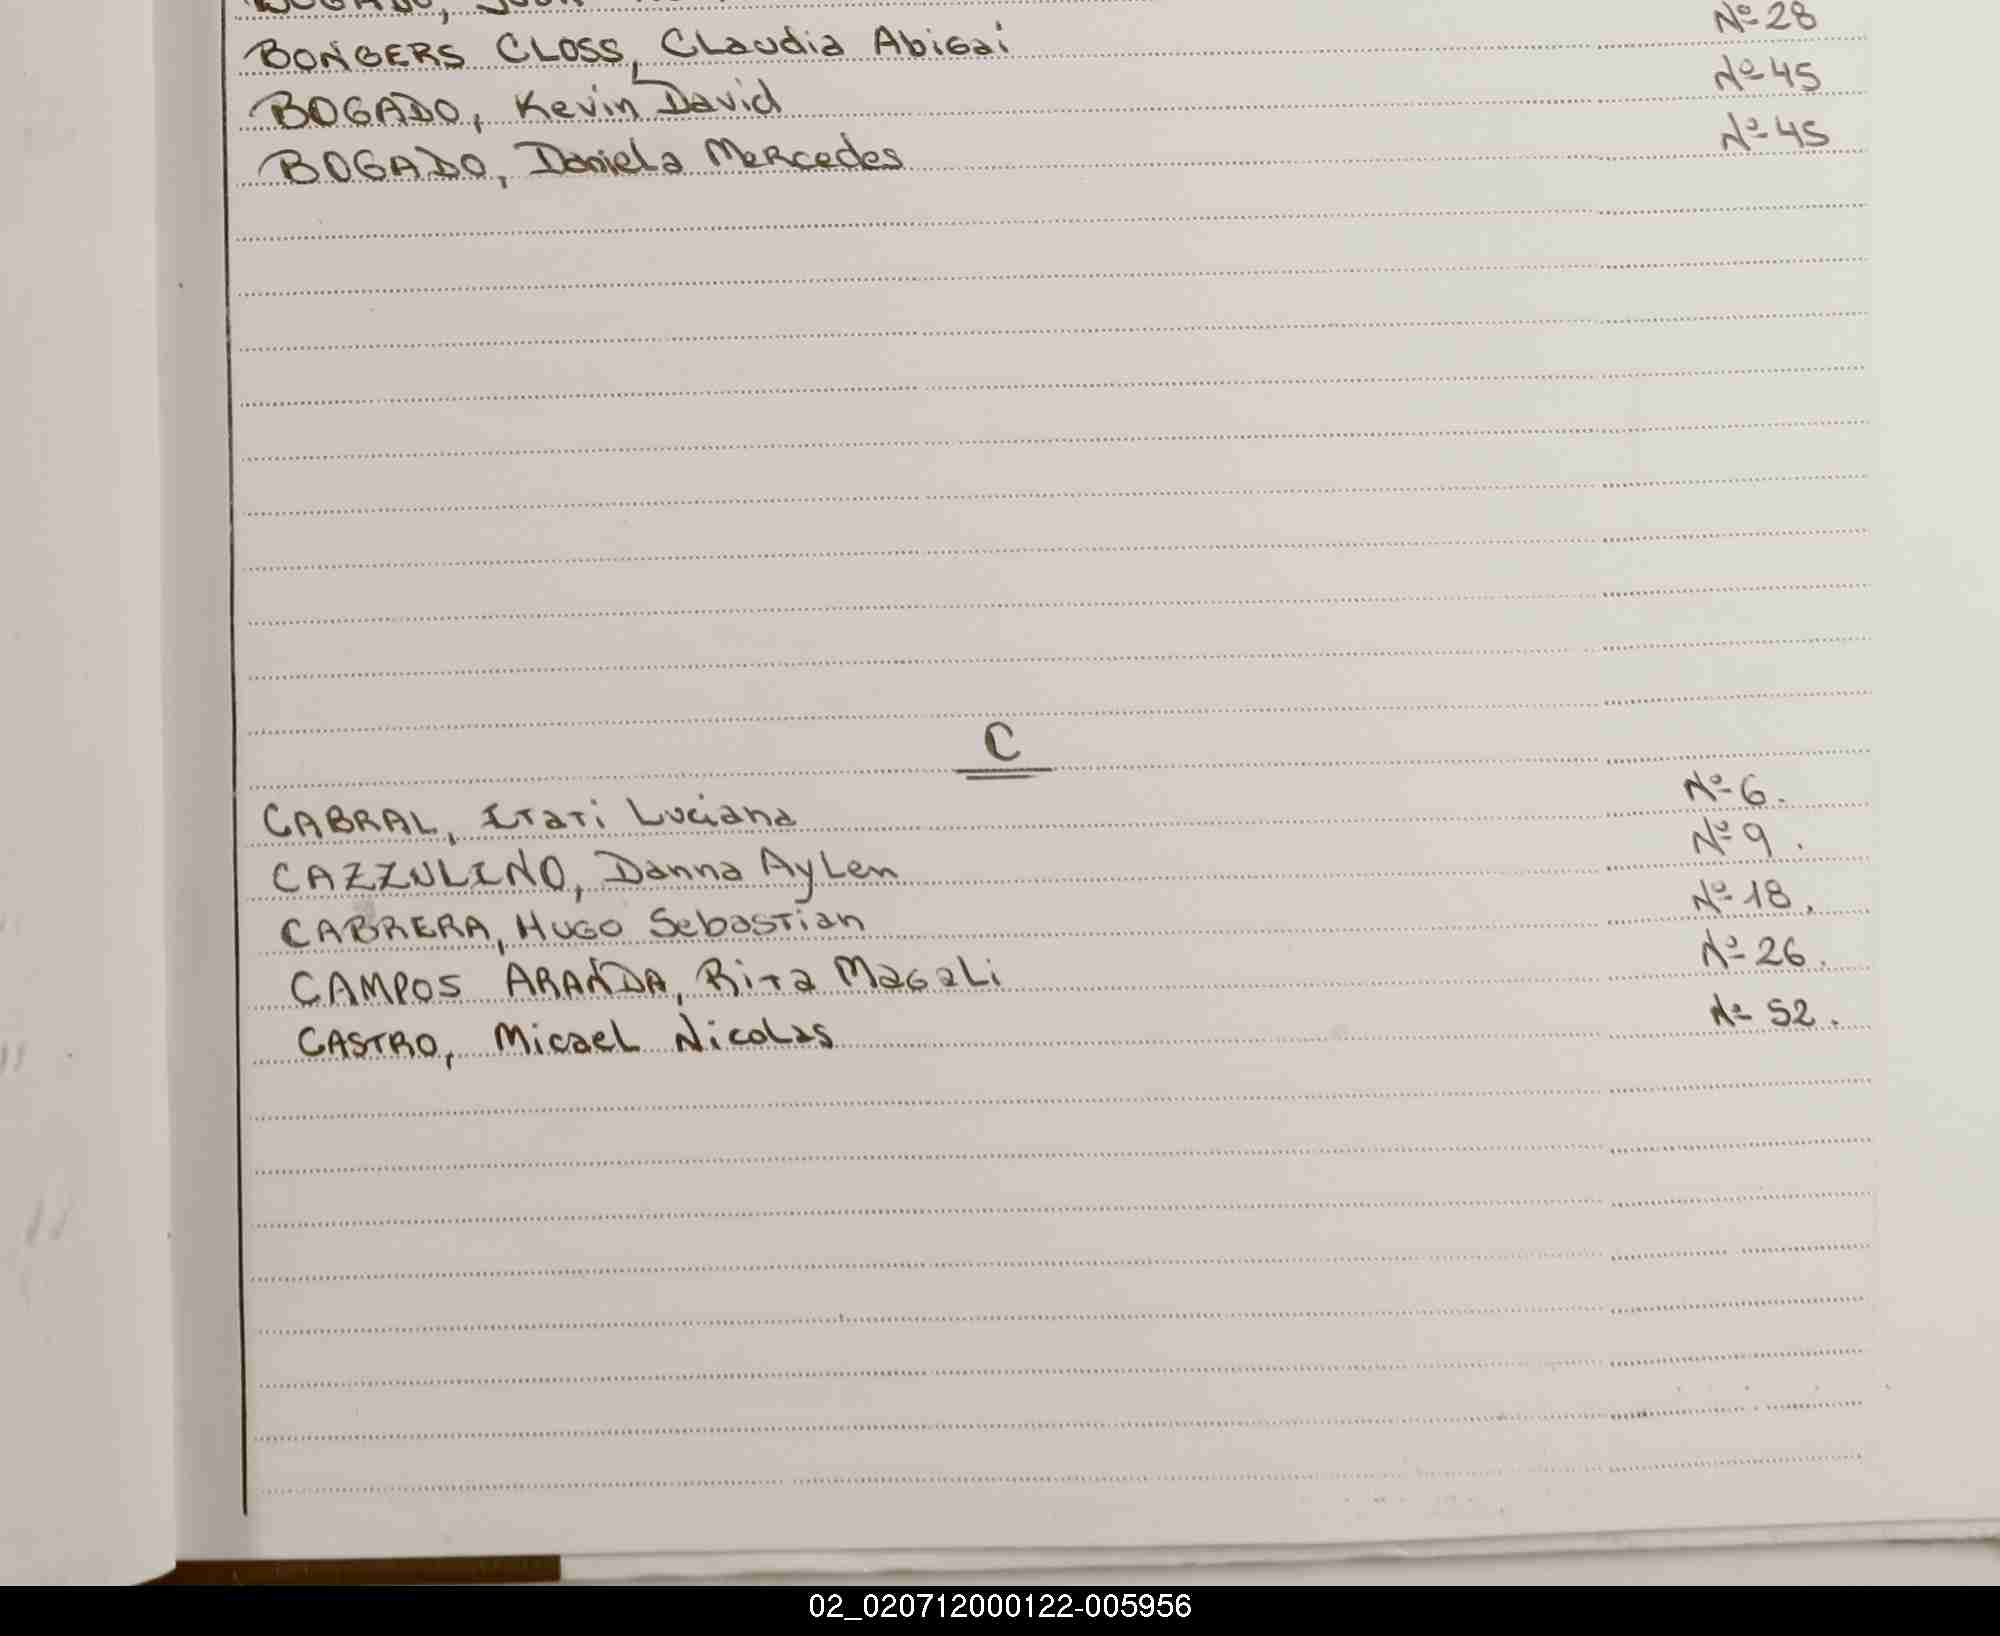 BOGADO,
BONGERS CLOSS, Claudia Abigai Nº 28
BOGADO, Kevin David Nº 45
BOGADO, Daniela Mercedes Nº 45
C
CABRAL, Itati Luciana Nº 6.
CAZZULINO, Danna Aylen Nº 9.
CABRERA, Hugo Sebastian Nº 18.
CAMPOS ARANDA, Rita Magali Nº 26.
CASTRO, Micael Nicolas Nº 52.
02_020712000122-005956